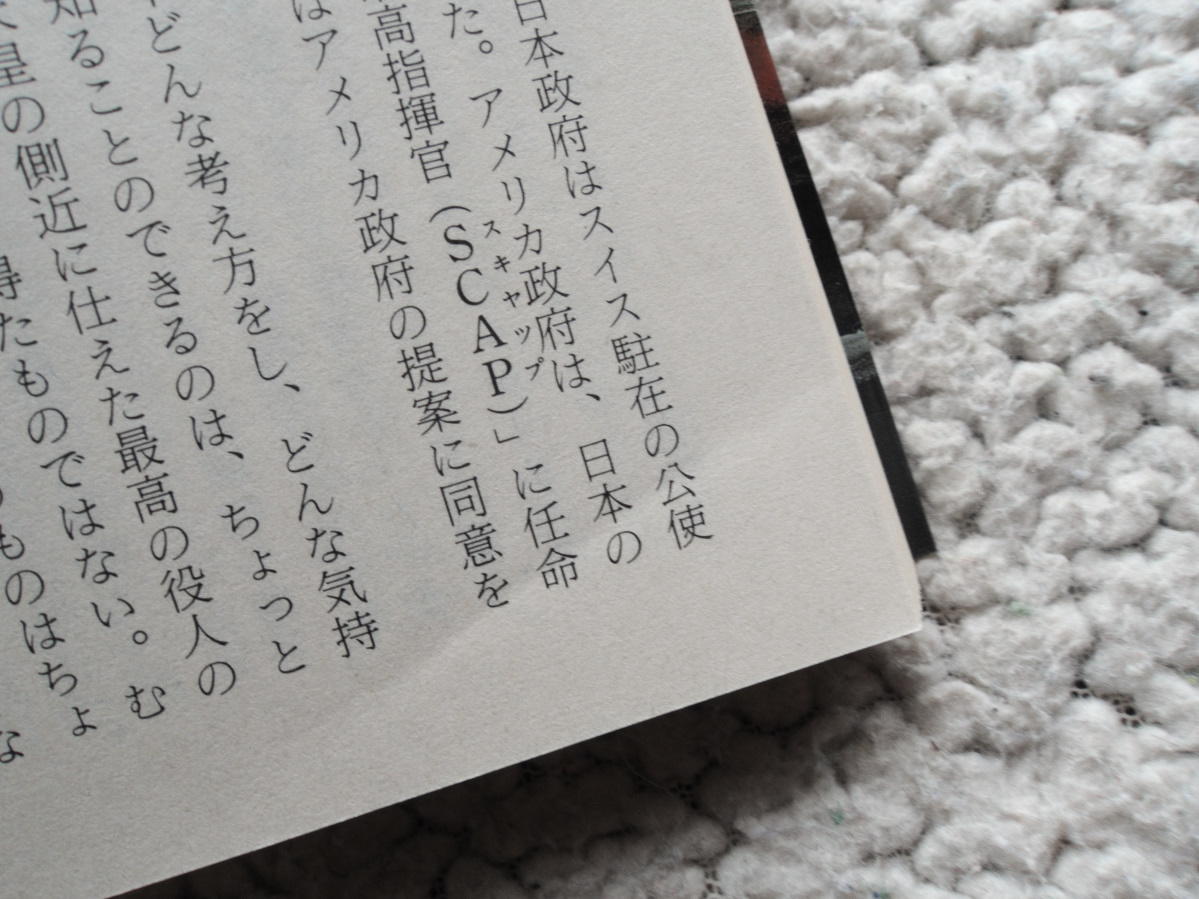 日本政府はスイス駐在の公使
た。アメリカ政府は、日本の
高指揮官(SCAP)」に任命
スキャップ
はアメリカ政府の提案に同意を
どんな考え方をし、どんな気持
知ることのできるのは、ちょっと
皇の側近に仕えた最高の役人の
得たものではない。む
ものはちょ
な